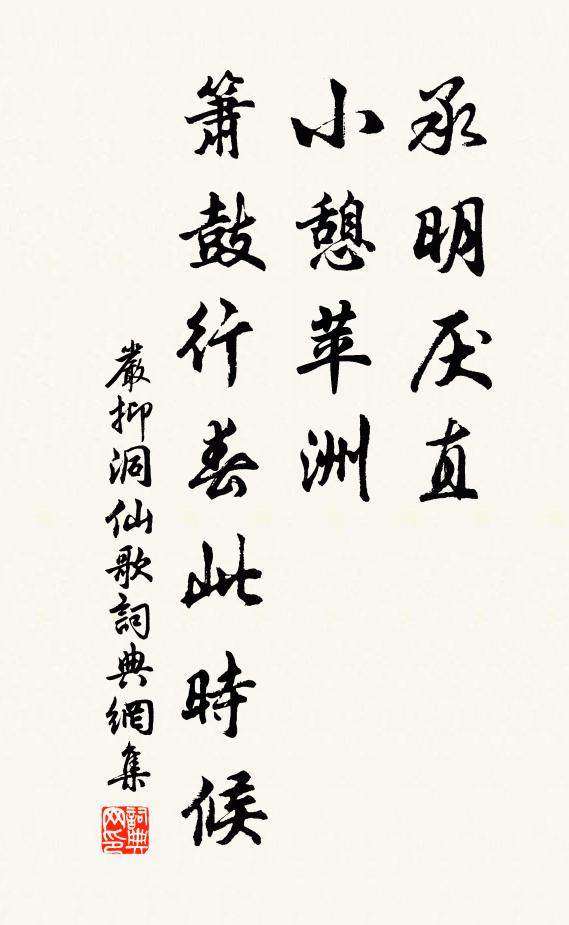 承明厌直
小憩苹洲
箫鼓行春此時候
嚴抑洞仙歌詞典網集
詞典网印